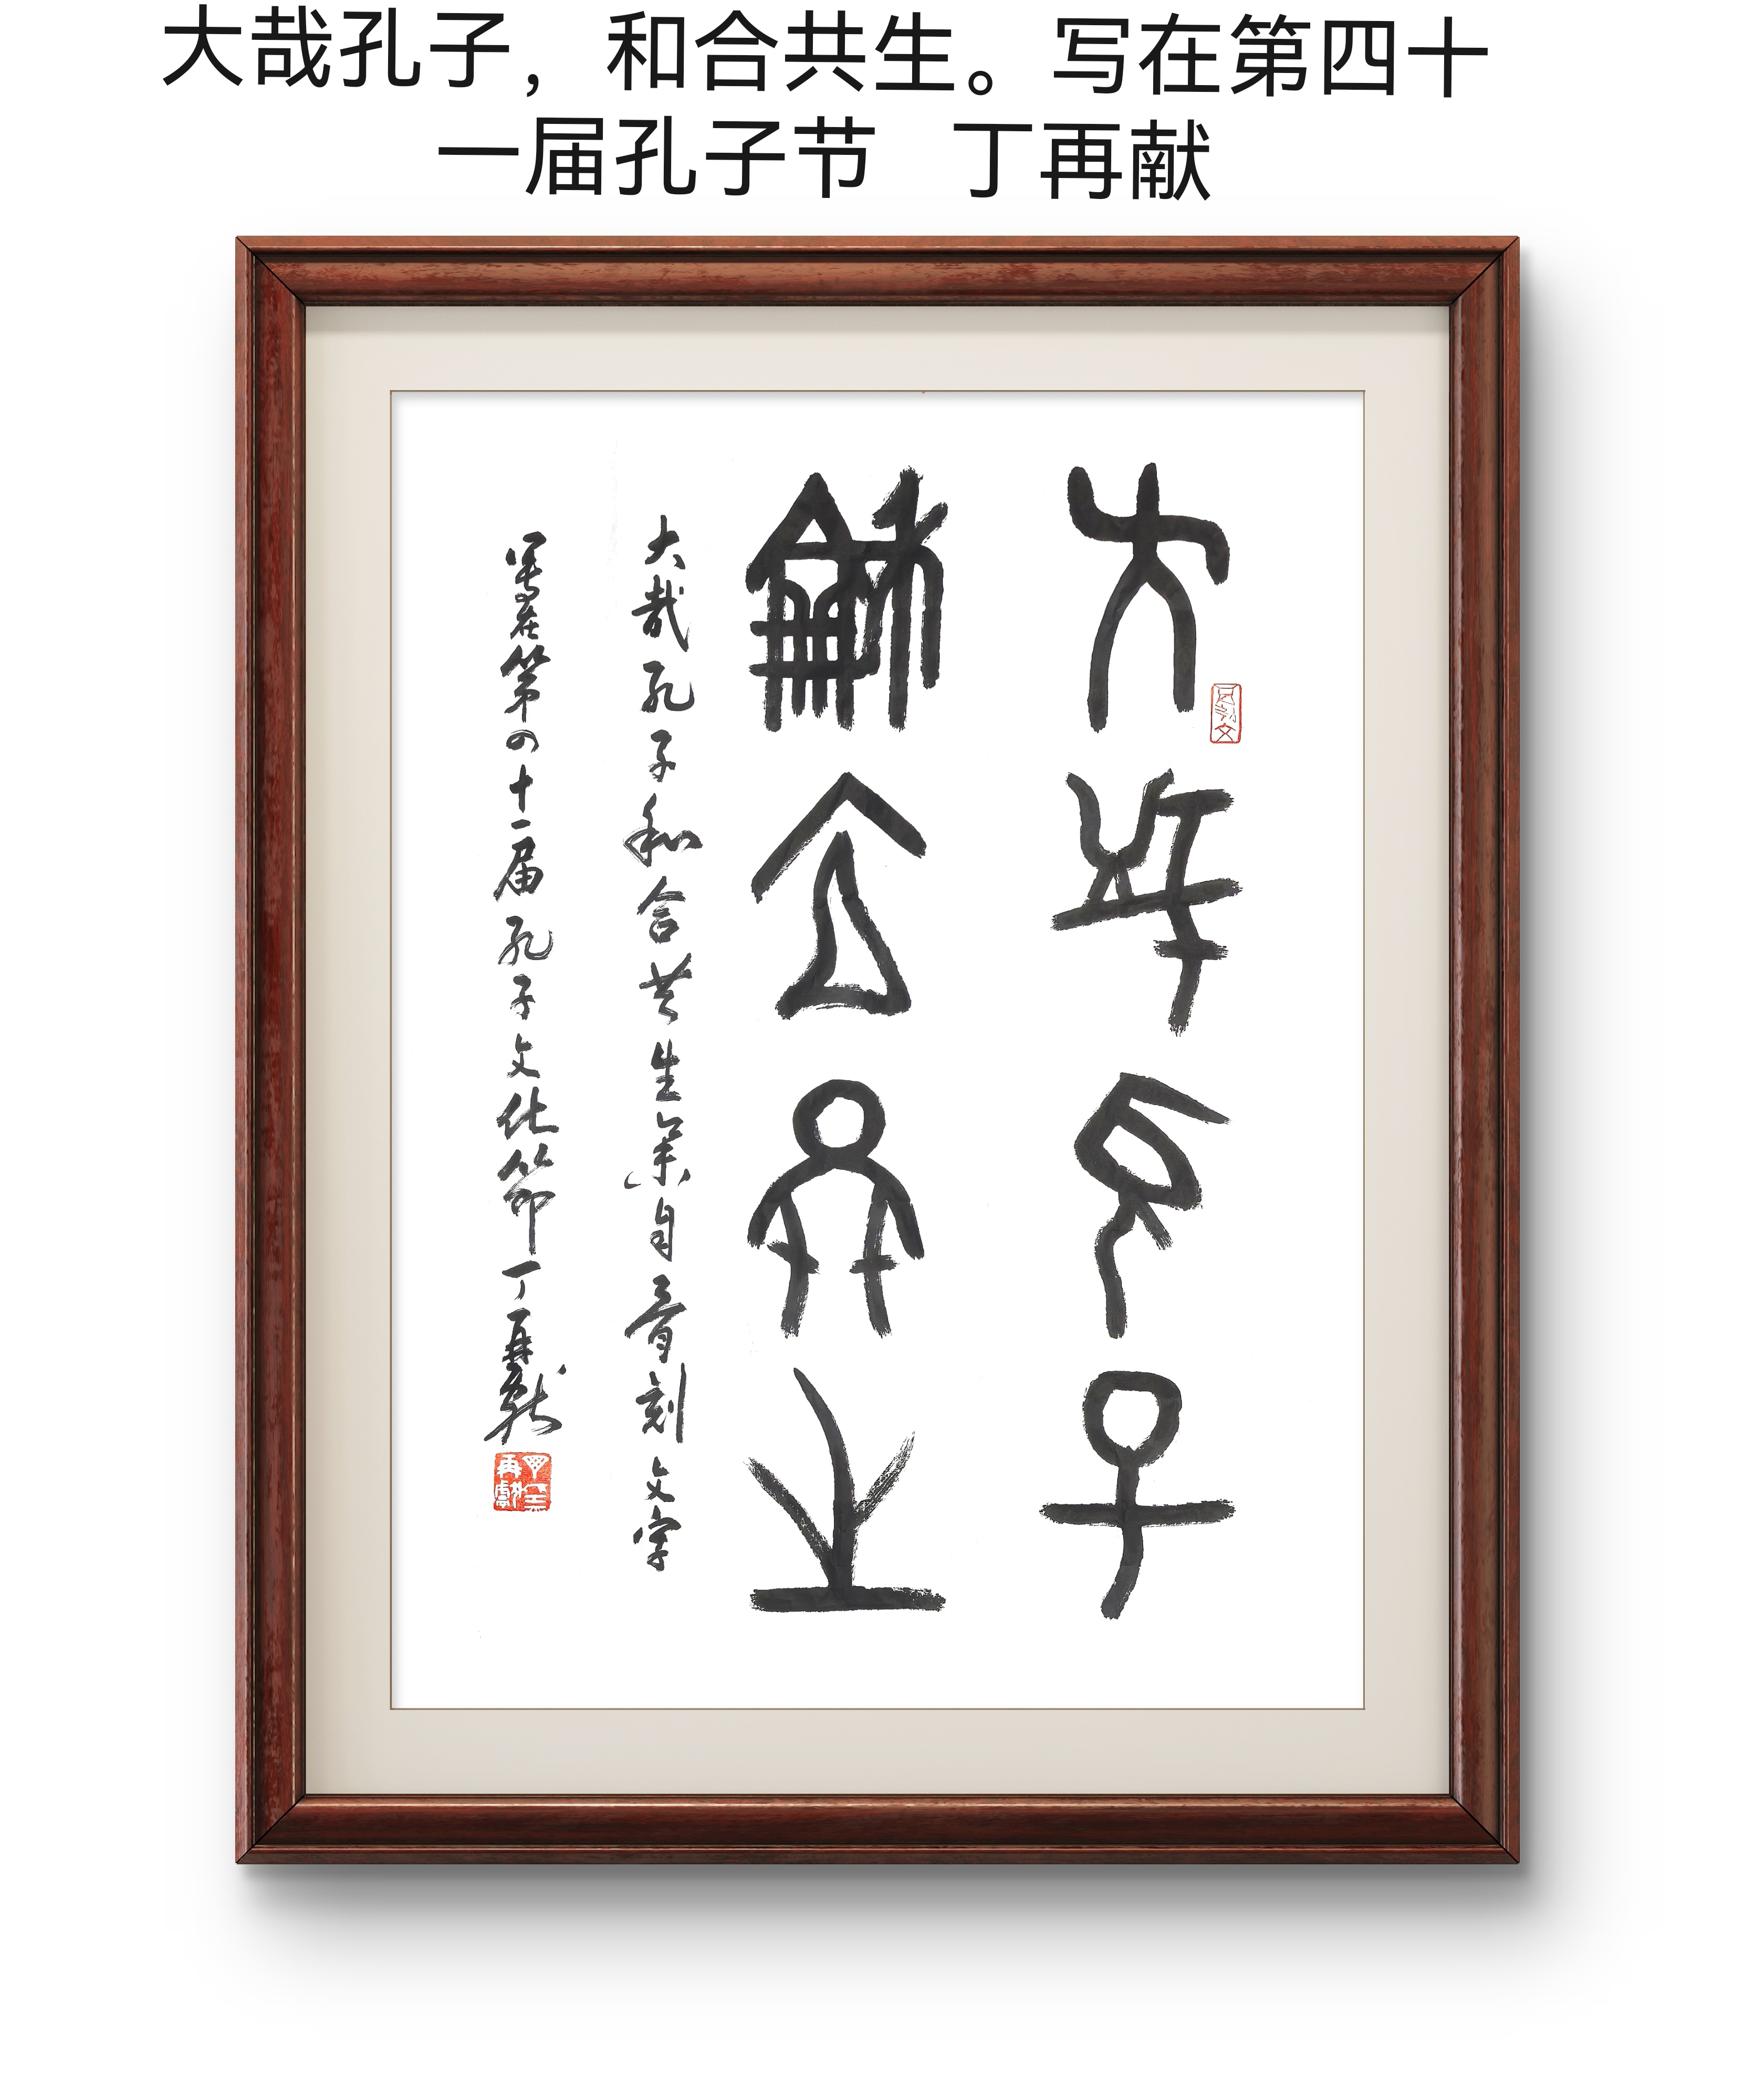 大哉孔子，和合共生。写在第四十
一届孔子节 丁再献
大哉孔子
龢合共生
大哉孔子和合共生集自骨刻文字
写在第四十一届孔子文化节丁再献